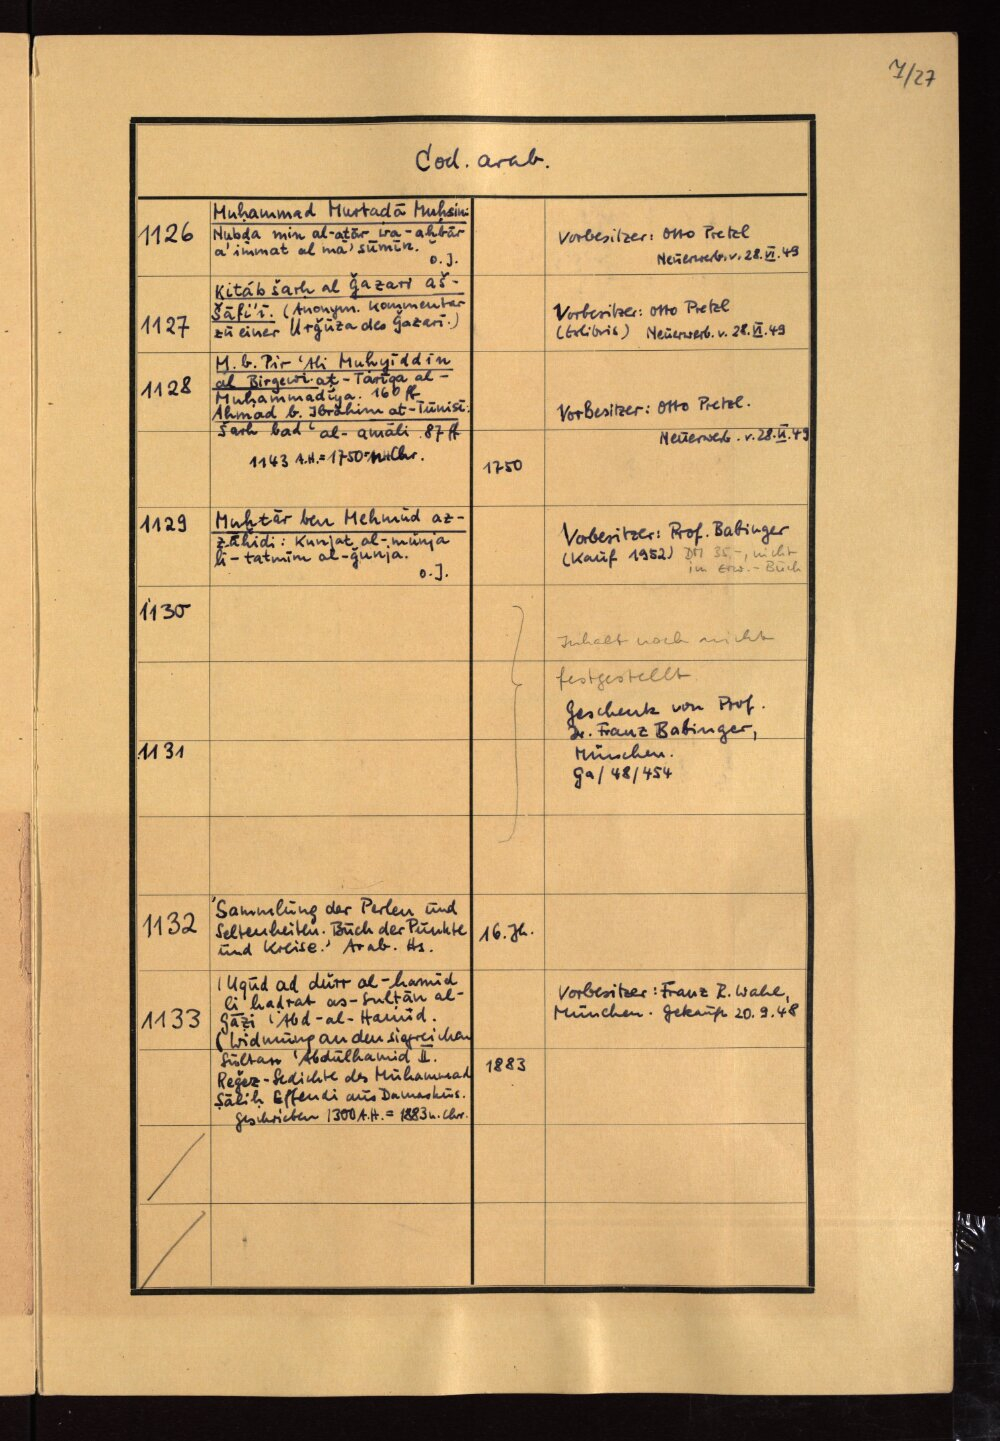 7/27
Cod. arab.
1126
Muḥammad Murtaḍā Muḥsin:
Nubda min al-aṯār wa-aḫbār
a'immat al ma'sūmīn.
o.J.
Vorbesitzer: Otto Pretzl
Neuerwerb. v. 28.VI.49
1127
Kitāb šarḥ al Ǧazari aš-
Šāfi'ī. (Anonym. Kommentar
zu einer Urǧūza des Ǧazarī.)
Vorbesitzer: Otto Pretzl
(Exlibris) Neuerwerb. v. 28.VI.49
1128
M. b. Pir ʿAli Muhyiddin
al Birgewi at-Tarīqa al-
Muḥammadīya. 160 ff
Ahmad b. Ibrāhim at-Tūnisī:
Šarḥ badʿ al-amāli. 87 ff
1143 A.H. = 1750 n.Chr.
1750
Vorbesitzer: Otto Pretzl.
Neuerwerb. v. 28.VI.49
1129
Muḫtār ben Mehmūd az-
zāhidi: Kunjat al-munja
li-tatmīm al-ġunja.
o.J.
Vorbesitzer: Prof. Babinger
(Kauf 1952) DM 35,-, nicht
im Erw.-Buch
1130
Inhalt noch nicht
festgestellt.
Geschenk von Prof.
Dr. Franz Babinger,
München.
Ga/48/454
1131
1132
'Sammlung der Perlen und
Seltenheiten. Buch der Punkte
und Kreise.' Arab. Hs.
16. Jh.
1133
ʿUqūd ad durr al-hamid
li hadrat as-sulṭān al-
ġāzi ʿAbd-al-Hamīd.
(Widmung an den siegreichen
Sultan ʿAbdülhamid II.
Reǧez-Gedichte des Muhammad
Ṣāliḥ Effendi aus Damaskus.
geschrieben 1300 A.H. = 1883 n. Chr.
1883
Vorbesitzer: Franz R. Wahl,
München. Gekauft 20.9.48